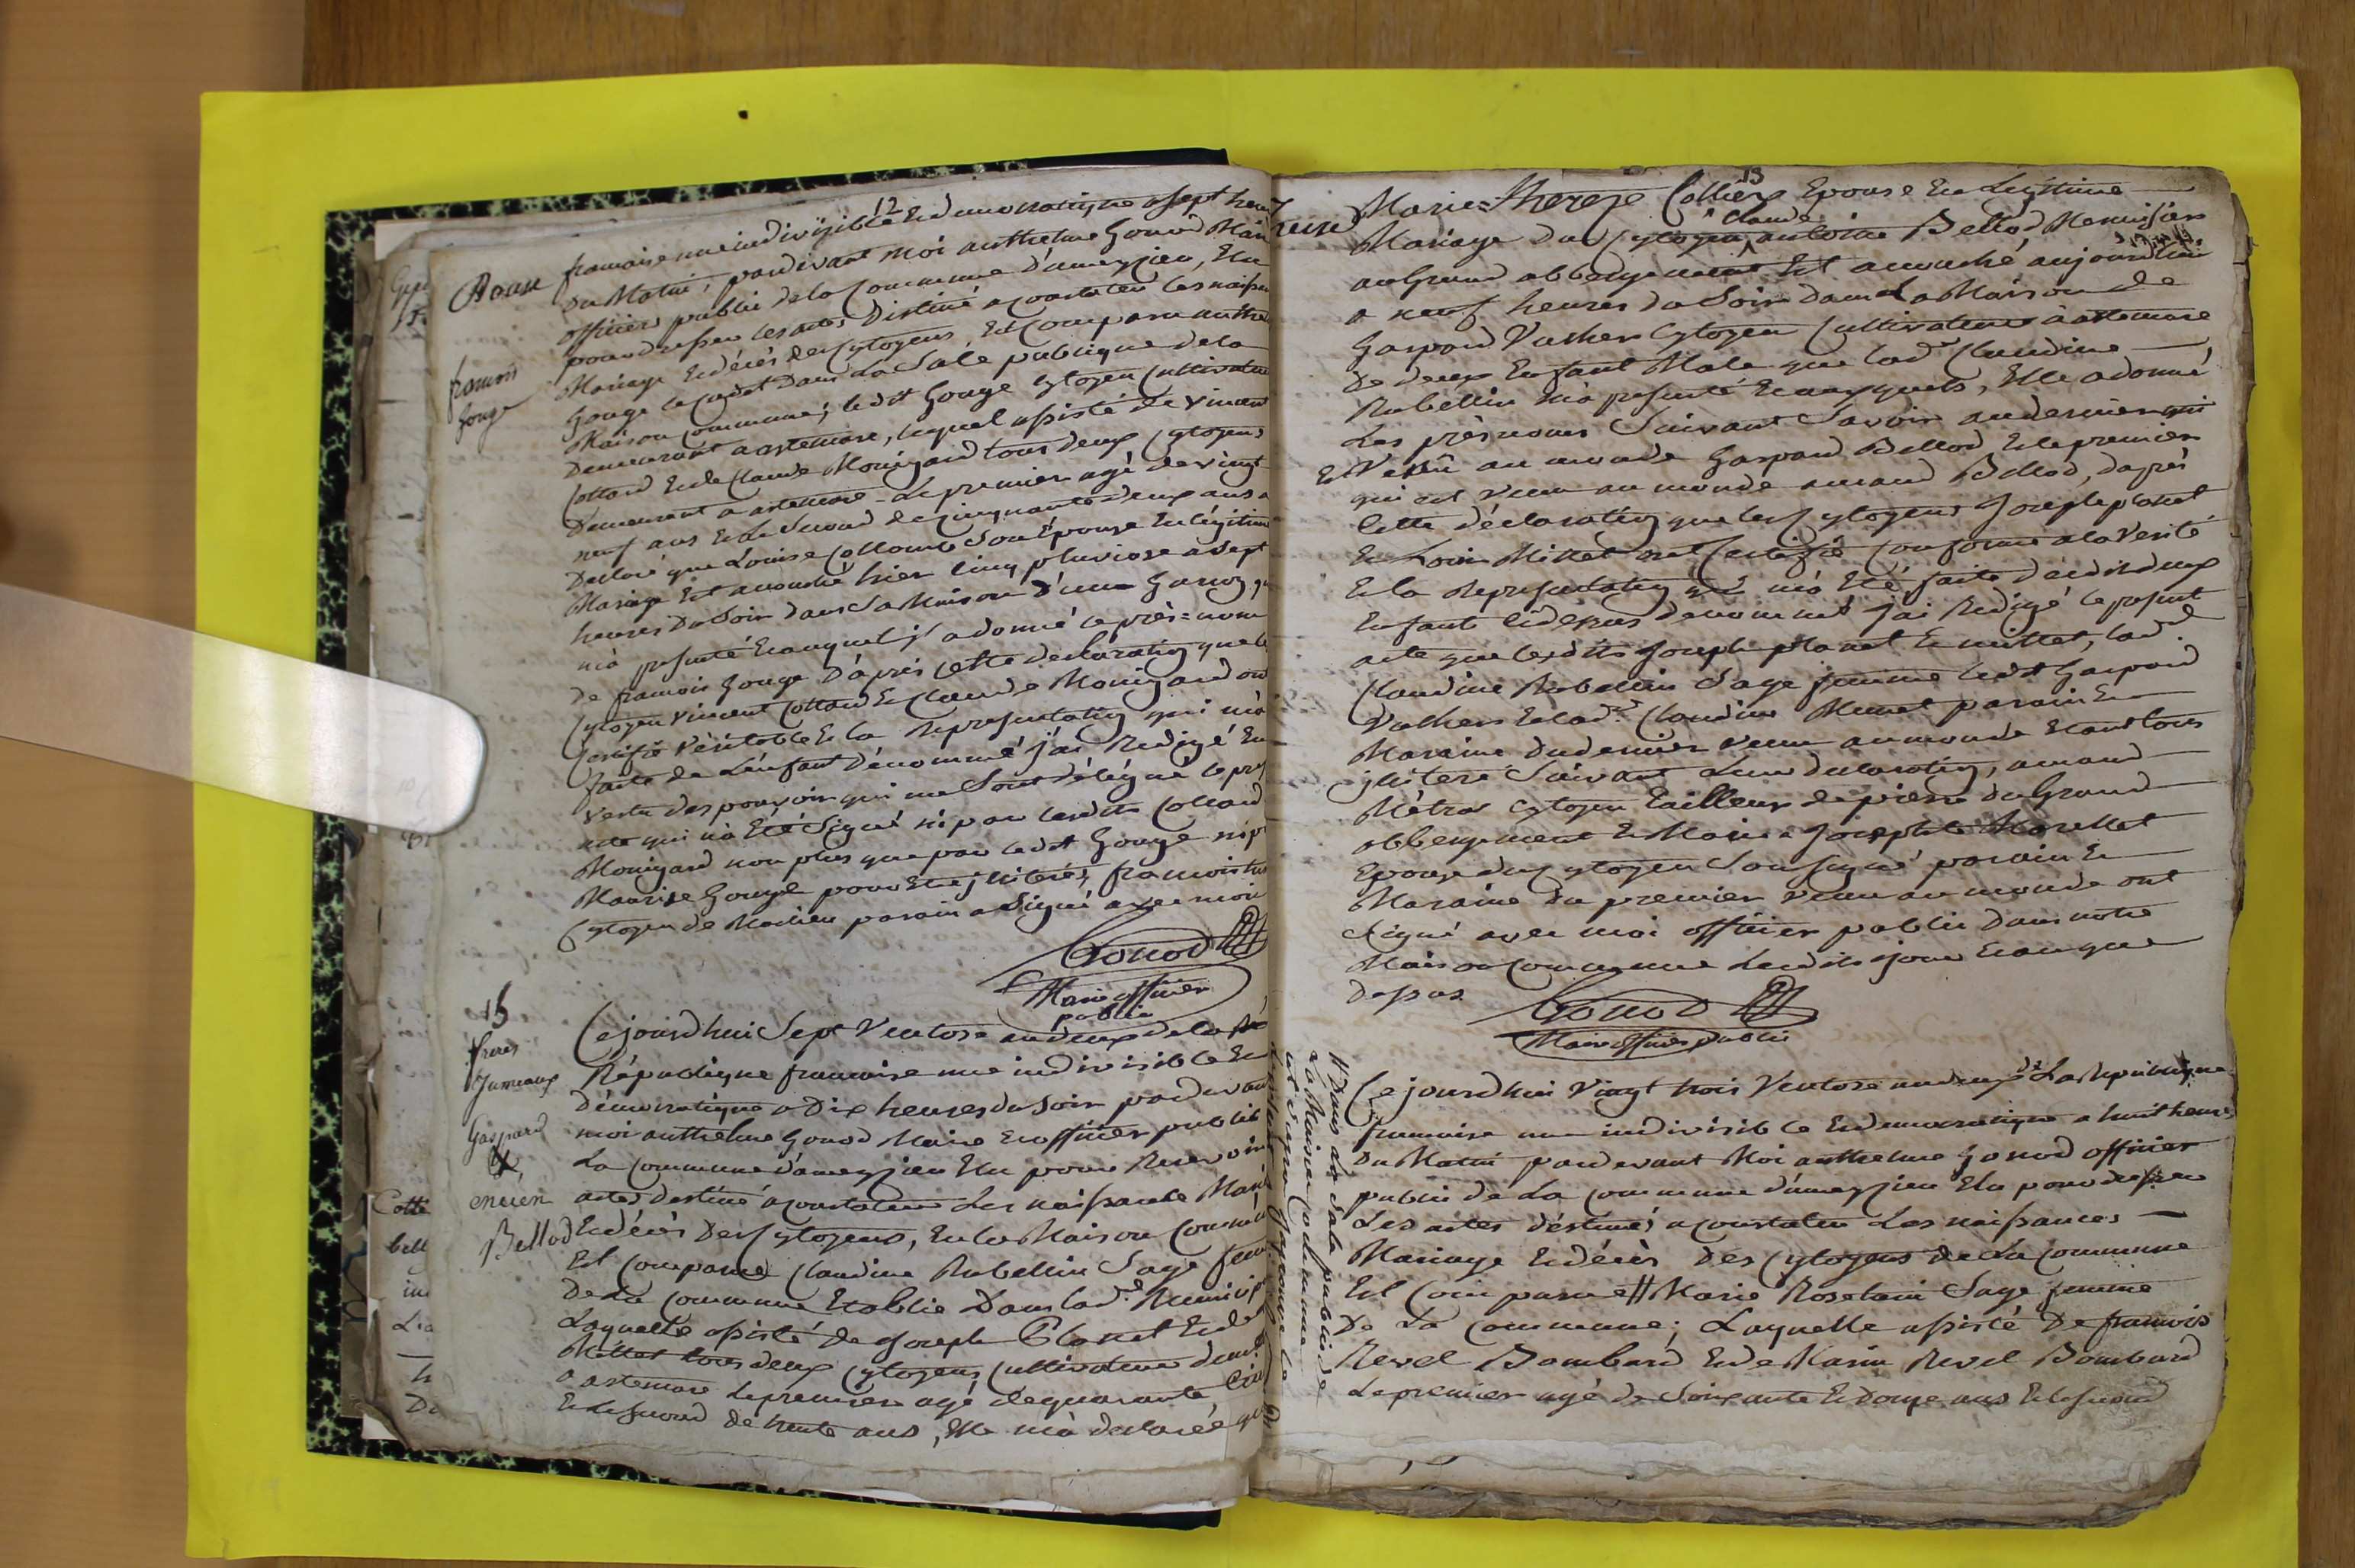 12
francoise une indivizible Et democratique a sept heur
Du Matin, pardevant Moi anthelme Gonod Mair
officier public de la Commune d'ameyzieu, Elu
pour dresser les actes Destiné a constater les naissan
Mariage Et décés des Cytoyens, Est Comparu anthe
francois
Gouge
Gouge le cadet Dans La Sale publique de la
Maison Commune; ledit Gouge Cytoyen Cultivateur
Demeurant a artemare, lequel assisté de vincent
Cottard Et de Claude Monigard tous deux Cytoyens
Demeurant a artemare - Le premier agé de vingt
neuf ans Et Le Second de cinquante deux ans a
Declaré que Louise Collomb Son Épouse En légitime
Mariage Est accouché hier cinq pluviose a Sept
heures Du Soir dans Sa Maison D'un Garçon qu
m'a presenté Et auquel il a donné le près=nom
de francois Gouge D'après cette declaration que le
Cytoyen Vincent Cottard Et Claude Monigard ont
Certifié Véritable Et la Representation qui m'a
faite de L'enfant Dénommé j'ai Redigé En
vertu des pouvoir qui me Sont délégué le pres
acte qui n'a Eté Signé ni par lesdits Cottard
Monigard non plus que par ledit Gouge ni p
Maurise Gouge pour Etre illiteré, francois
Cytoyen de Marlieu parain a Signé avec moi
Gonod
Maire officier
public
15
freres
Jumeaux
Gaspard
&
Bellod
Cejourdhui Sept Ventose an deux de la
République francoise une indivisible Et
démocratique a Dix heures du Soir pardevant
moi anthelme Gonod Maire Et officier public
La Commune d'ameyzieu Elu pour Recevoir
actes destiné a constater Les naissance Mari
Et décés Des Cytoyens, En la Maison Commune
Est Comparue Claudine Rubellin Sage fem
De La Commune Etablie Dans lad.e Municip
Laquelle assisté de Joseph Planet Et de
Mittet tous deux Cytoyens Cultivateur dem
a artemare Le premier agé de quarante cin
Et Le Second de trente ans, Elle m'a declarée que
13
Marie=Thereze Collier Epouse En Legitime
Mariage Du Cytoyen Claude antoine Bellod Menuisier
au Grand abbergement Est accouché aujourdhui
a neuf heures du Soir Dans La Maison de
Gaspard Vuthers Cytoyen Cultivateur a artemare
De deux Enfant Male que lad.e Claudine
Rubellin m'a presenté Et auxquels, Elle a donné
Les prèsnoms Suivant Savoir au dernier qui
Est Venu au monde Gaspard Bellod Et le premier
qui est venu au monde amand Bellod, daprès
Cette déclaration que les Cytoyens Joseph planet
Et Loui Mittet ont Certifié Conforme a la Verité
Et la Representation qui m'a Eté faite desdits deux
Enfant Cidessus denommé j'ai Redigé le present
acte que lesdits Joseph planet Et mittet, lad.e
Claudine Rubellin Sage femme ledit Gaspard
Vuthers Et lad.e Claudine Munet parain Et
Maraine du dernier venu au monde Etant tous
illiteré Suivant Leur declaration, amand
Métral Cytoyen Tailleur de pierre du Grand
abbergement Et Marie Josephte Marellet
Epouse du Cytoyen Soussigné parain Et
Maraine du premier venu au monde ont
Signé avec moi officier public Dans notre
Maison Commune Lesdits jour Et an que
Dessus
Gonod
Maire officier public
Cejourdhui Vingt trois Ventose an deux de La Republique
francoise une indivisible Et democratique a huit heures
Du Matin pardevant Moi anthelme Gonod officier
public de La Commune d'ameyzieu Elu pour dresser
Les actes destiné a constater Les naissances
Mariage Et décés Des Cytoyens de La Commune
Est Comparue # Marie Roselain Sage femme
De La Commune; Laquelle assisté De francois
Revel Bombard Et de Marin Revel Bombard
Le premier agé de Soixante Et douze ans Et le Second
# Dans La Sale public de
La Maison Commune